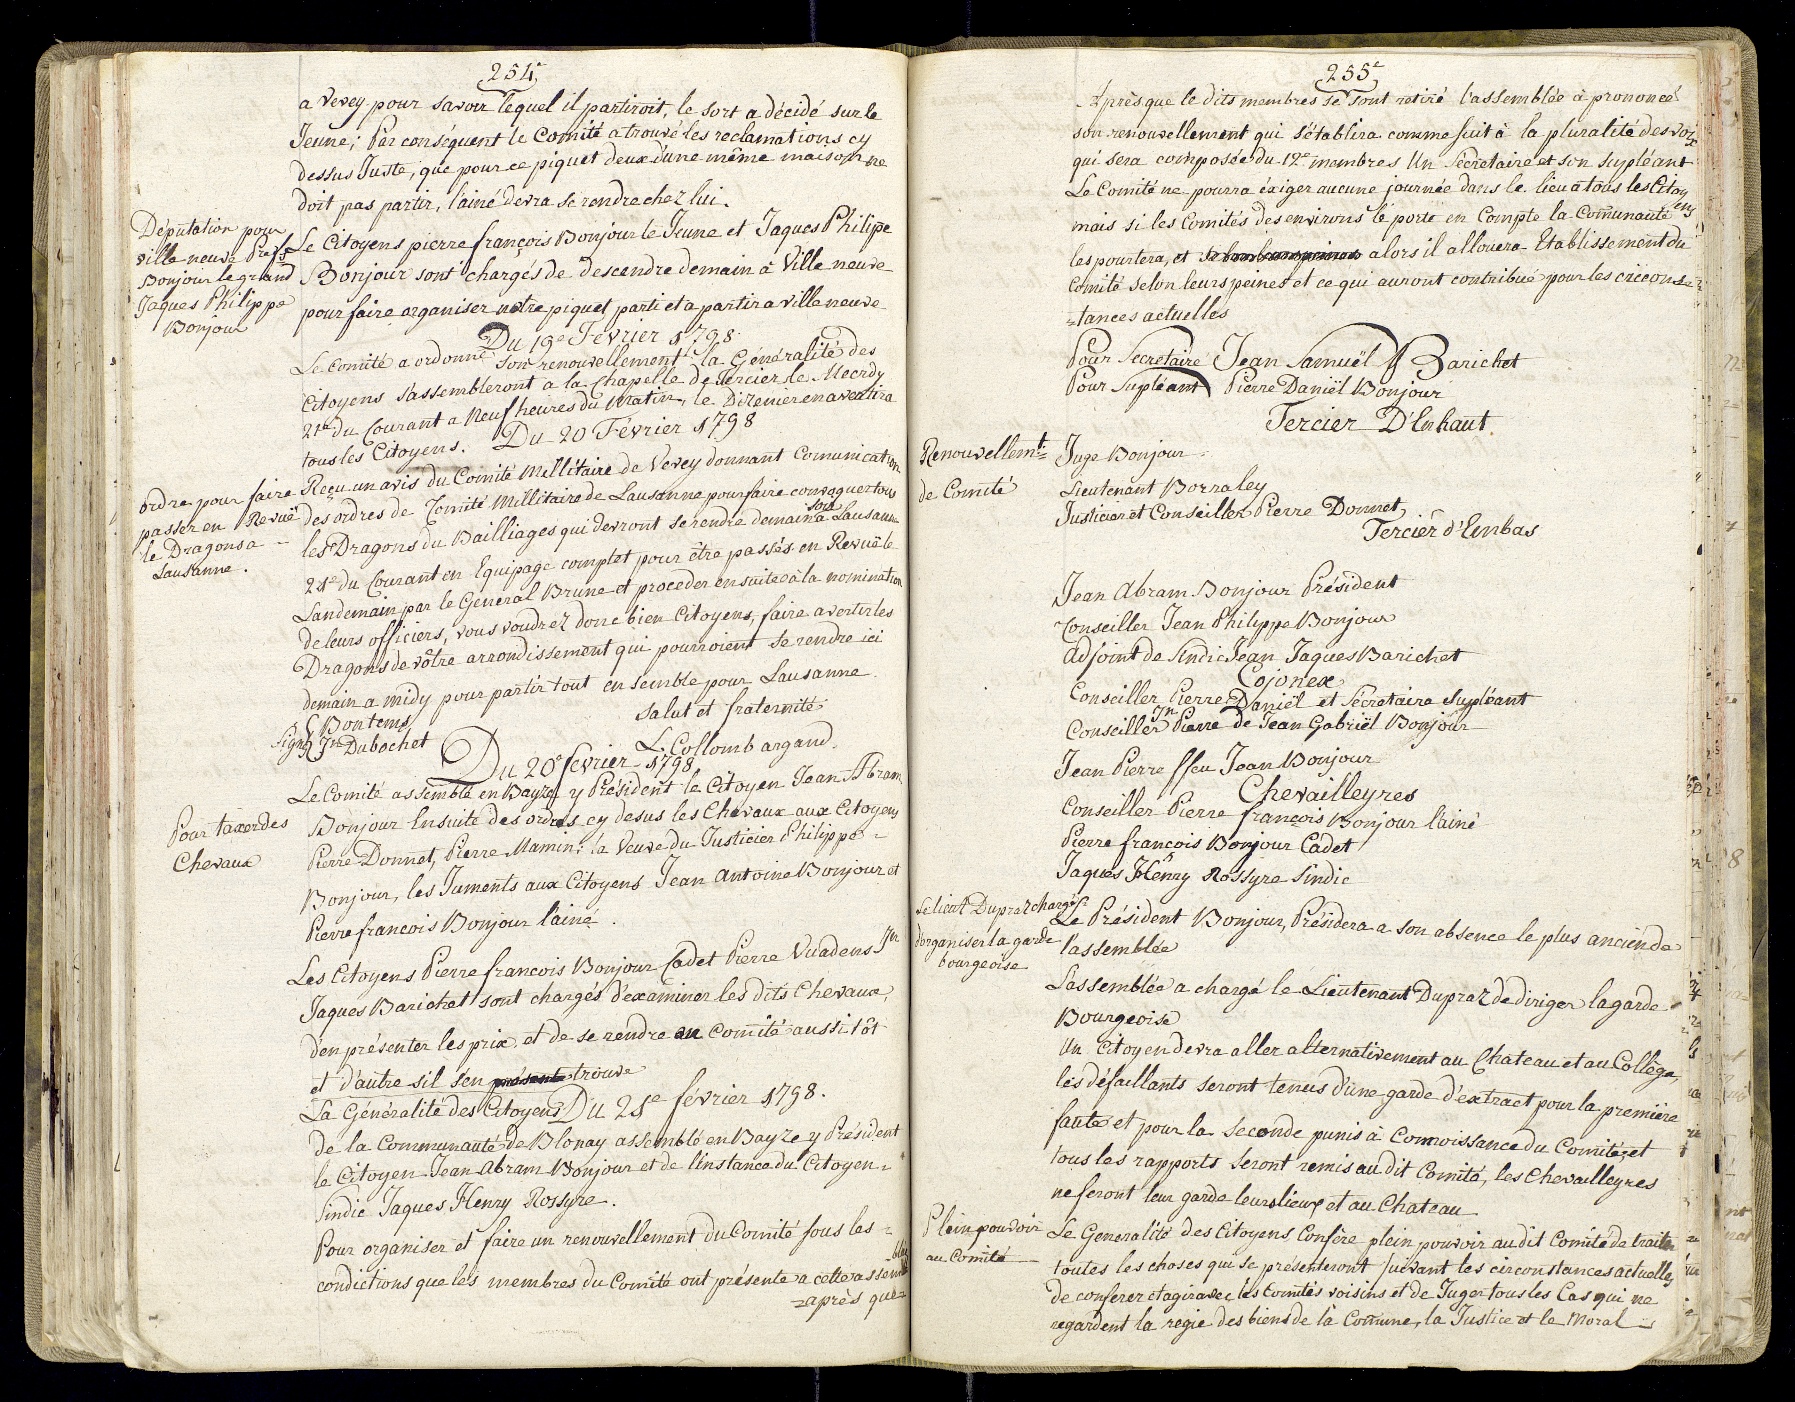 254.
a Vevey pour savoir lequel il partiroit, le sort a décidé sur le
Jeune; Par conséquent le Comité a trouvé les reclamations cy
dessus Juste, que pour ce piquet deux d'une même maison ne
doit pas partir, l'ainé devra se rendre chez lui.
Députation pour
ville neuve
Bonjour le grand
Jaques Philippe
Bonjour
Le Citoyens pierre françois Bonjour le Jeune et Jaques Philipe
Bonjour sont chargés de descendre demain à Ville neuve
pour faire organiser notre piquet parti et a partir a villeneuve
Du 19e Février 1798.
Le Comité a ordonné son renouvellement la Généralité des
Citoyens s'assembleront a la Chapelle de Tercier le Mecrdy
21e du Courant a Neuf heures du Matin, le Dizenier en avertira
tous les Citoyens. Du 20 Février 1798
ordre pour faire
passer en Revuë
le Dragons a
Lausanne.
Reçu un avis du Comité Millitaire de Vevey donnant Comunication
des ordres de Comité Millitaire de Lausanne pour faire convoquer tous
les Dragons du Bailliages qui devront se rendre demain soir a Lausanne
21e du Courant en Equipage complet pour être passés en Revuë le
Landemain par le General Brune et proceder ensuite à la nomination
de leurs officiers, vous voudrez donc bien Citoyens, faire avertir les
Dragons de vôtre arrondissement qui pourroient se rendre ici
demain a midy pour partir tout ensemble pour Lausanne.
Salut et fraternité
Signé Bontems
Jn Dubochet
L. Collomb argand.
Du 20e février 1798
Le Comité assemblé en Bayze y Président le Citoyen Jean Abram
Pour taxer des
Chevaux
Bonjour Ensuite des ordres cy desus les Chevaux aux Citoyens
Pierre Donnet, Pierre Mamin: la Veuve du Justicier Philippe
Bonjour, les Juments aux Citoyens Jean Antoine Bonjour et
Pierre francois Bonjour l'ainé.
Les Citoyens Pierre francois Bonjour Cadet Pierre Vuadens Jn
Jaques Barichet sont chargés d'examiner les dits Chevaux,
d'en présenter les prix et de se rendre au Comité aussi tôt
et d'autre sil s'en présente trouve
Du 21e février 1798.
La Généralité des Citoyens
de la Communauté de Blonay assemblé en Bayze y Président
le Citoyen Jean Abram Bonjour et de l'instance du Citoyen
Sindic Jaques Henry Rossyre.
Pour organiser et faire un renouvellement du Comité sous les
condictions que les membres du Comité ont présente a cette assemblée
=après que=
255e
Après que le dits membres se sont retiré l'assemblée à prononcé
son renouvellement qui s'établira comme suit à la pluralité des voix
qui sera composée du 12e membres Un Sécretaire et son supléant
Le Comité ne pourra éxiger aucune journée dans le lieu à tous les Citoyens
mais si les Comités des environs le porte en Compte la Communauté
les pourtera, et alors il allouera Etablissement du
Comité selon leurs peines et ce qui auront contribué pour les circons=
=tances actuelles
Pour Secretaire Jean Samuël Barichet
Pour Supléant Pierre Daniël Bonjour
Tercier D'Enhaut.
Renouvellemt.
de Comité
Juge Bonjour
Lieutenant Borraley
Justicier et Conseiller Pierre Donnet
Tercier d'Embas
Jean Abram Bonjour Président
Conseiller Jean Philippe Bonjour
Adjoint de Sindic Jean Jaques Barichet
Cojonex
Conseiller Pierre Daniël et Sécretaire Supléant
Conseiller Jn Pierre de Jean Gabriël Bonjour
Jean Pierre ffeu Jean Bonjour
Chevailleyres
Conseiller Pierre françois Bonjour l'ainé
Pierre francois Bonjour Cadet
Jaques Henry Rossyre Sindic
Le lieut Dupraz chargé
d'organiser la garde
bourgeoise
Le Président Bonjour, Présidera a son absence le plus ancien de
l'assemblée
L'assemblée a chargé le Lieutenant Dupraz de diriger la garde
Bourgeoise
Un Citoyen devra aller alternativement au Chateau et au Collège,
les défaillants seront tenus d'une garde d'extract pour la première
faute et pour la seconde punis à Connoissance du Comité, et
tous les rapports seront remis au dit Comité, les Chevailleyres
ne feront leur garde leurs lieux et au Chateau
Plein pouvoir
au Comité
Le Generalité des Citoyens Confère plein pouvoir au dit Comité de traiter
toutes les choses qui se présenteront suivant les circonstances actuelles
de conferer et agir avec les Comités voisins et de Juger tous les Cas qui ne
regardent la régie des biens de la Comune, la Justice et le Moral